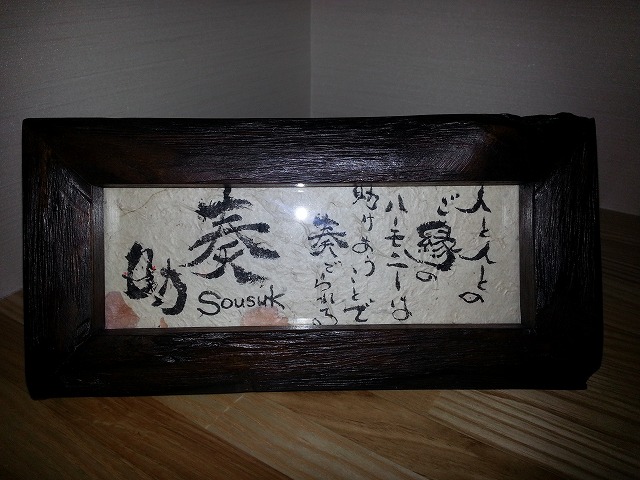 人と人との
ご縁の
ハーモニーは
助けあうことで
奏でられる
奏
助
Sousuk